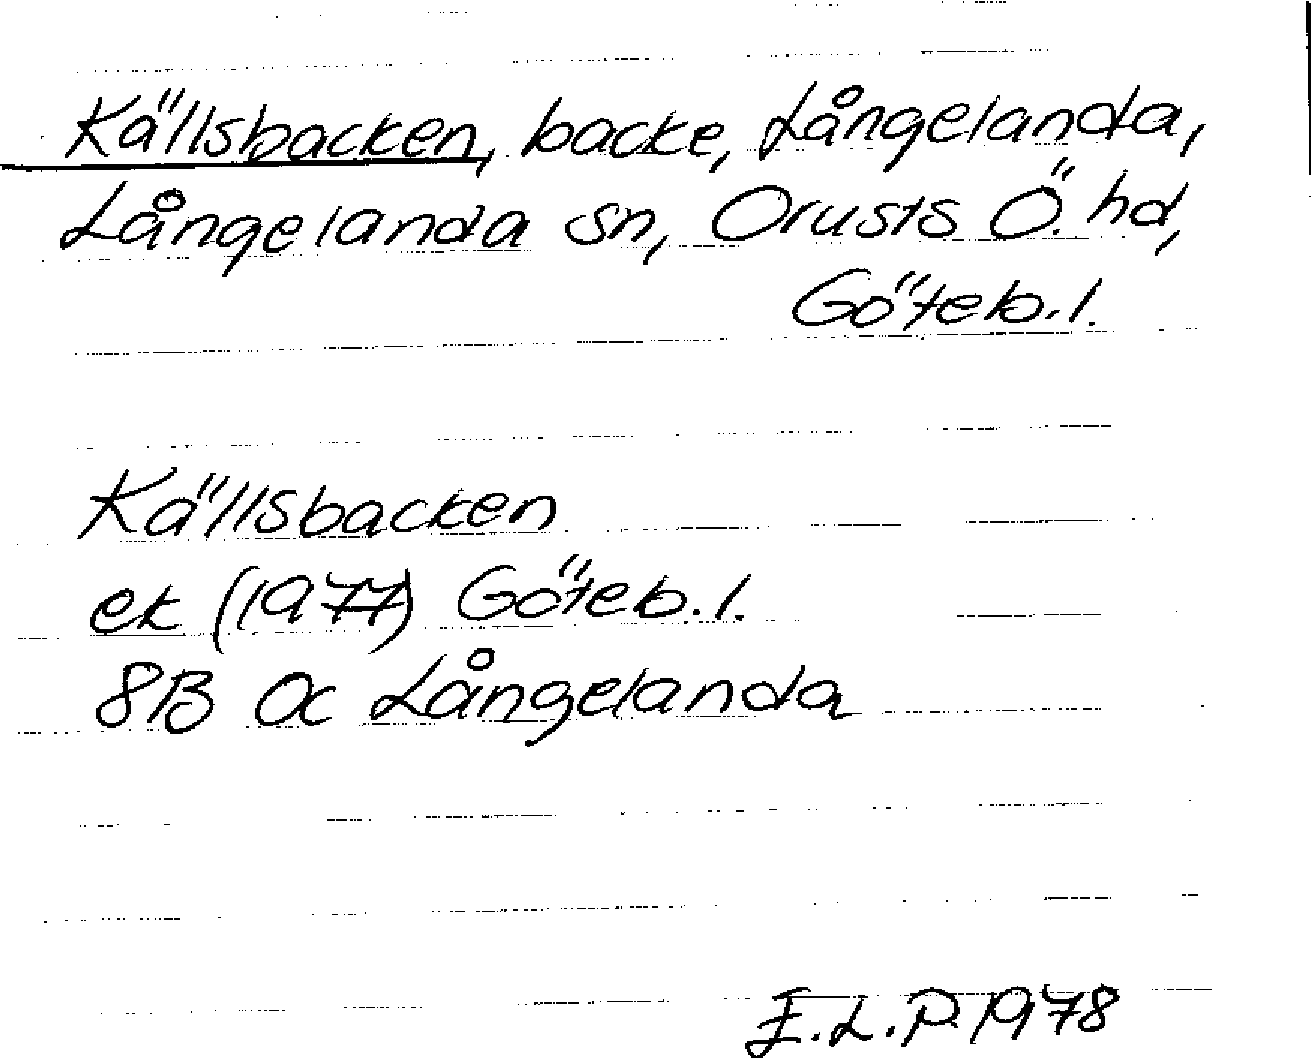 Källsbacken, backe, Långelanda,
Långelanda sn, Orusts Ö. hd,
Göteb.l.
Källsbacken
ek (1977) Göteb.l.
8B 0c Långelanda
E.L.P. 1978